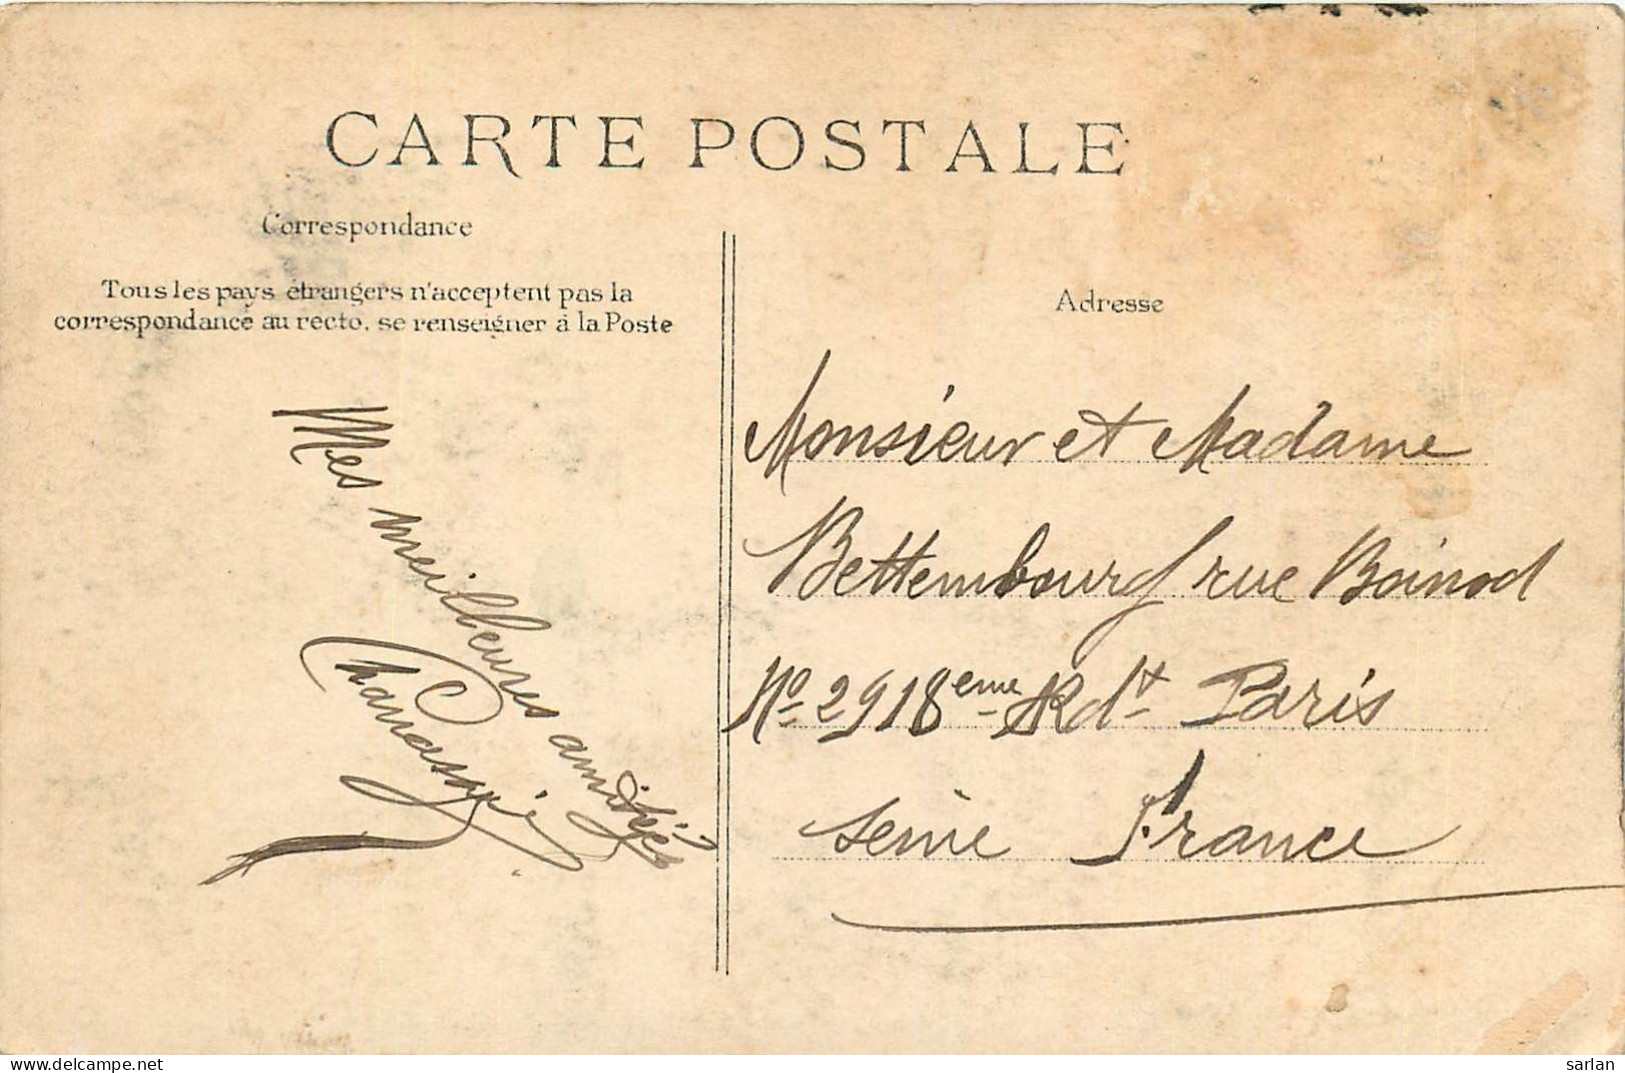 CARTE POSTALE
Correspondance
Tous les pays étrangers n'acceptent pas la
correspondance au recto, se renseigner à la Poste
Adresse
Mes meilleures amitiés
Monsieur et Madame
Bettembourg rue Boinod
No 29 18eme Rdt Paris
Seine France
sarlan
delcampe.net